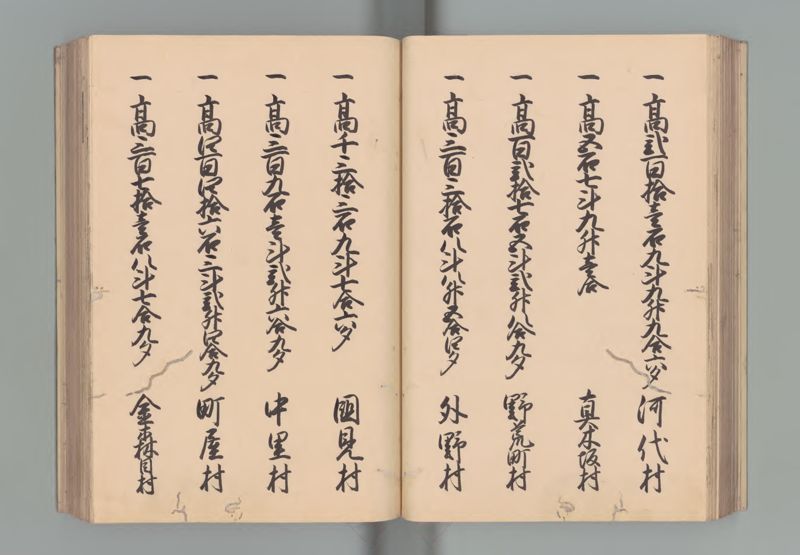 一高弐百拾壱石九斗九升九合六夕 河代村
一高五石七斗九升壱合 真木坂村
一高百弐拾七石五斗弐升八合九夕 野荒町村
一高三百三拾石八斗八升五合四夕 外野村
一高千三拾三石九斗七合六夕 国見村
一高三百九石壱斗弐升六合九夕 中里村
一高四百四拾六石三斗弐升四合九夕 町屋村
一高三百七拾壱石八斗七合九夕 金森目村